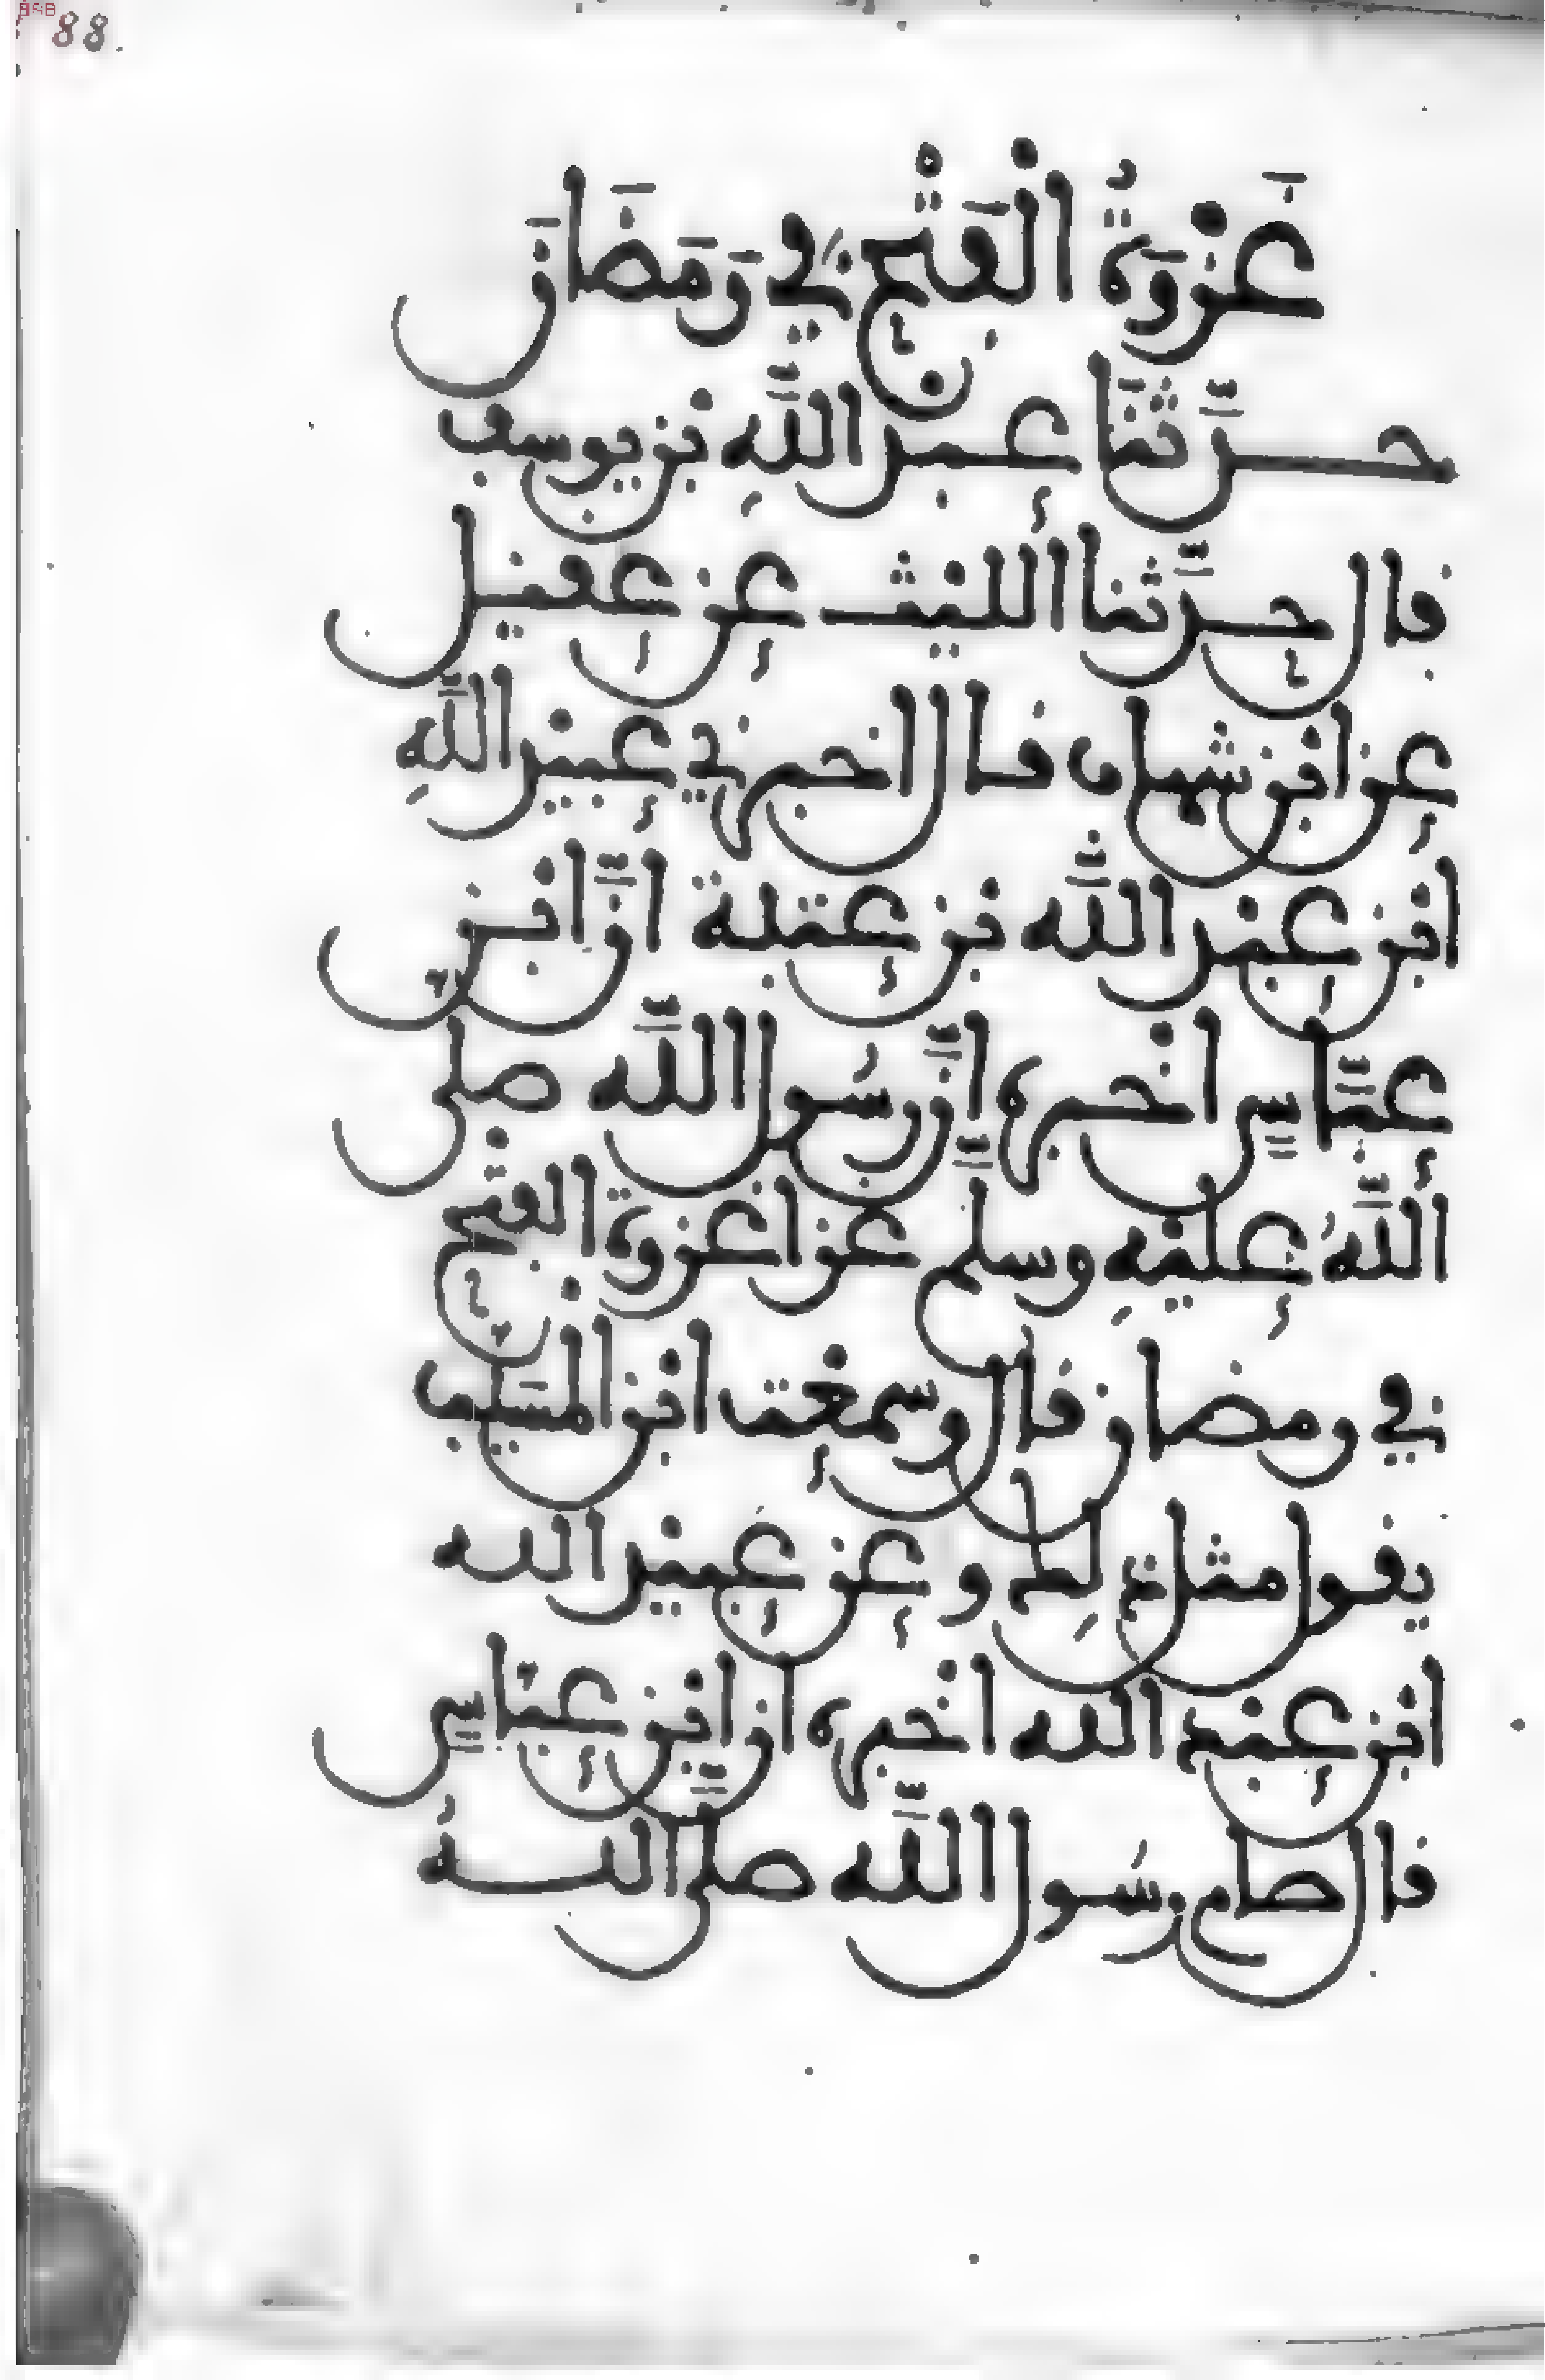 88.
غَزْوَةُ الْفَتْحِ فِي رَمَضَانَ
حدَّثنَا عبد اللَّهِ بن يوسف
قال حدَّثنا الليث عن عقيل
عن ابن شهاب قال اخبرني عبيد اللَّهِ
ابن عبد اللَّه بن عتبة انَّ ابن
عبَّاسٍ اخبره انَّ رسُول اللَّه صلى
اللَّهُ عليهِ وسلم غزا غزوة الفتح
في رمضان قال وسمعت ابن المسَيب
يقول مثل ذلِك وعن عبيد الله
ابن عبد الله اخبره ان ابن عباسٍ
قال صام رسُول اللَّه صلَّى اللهُ